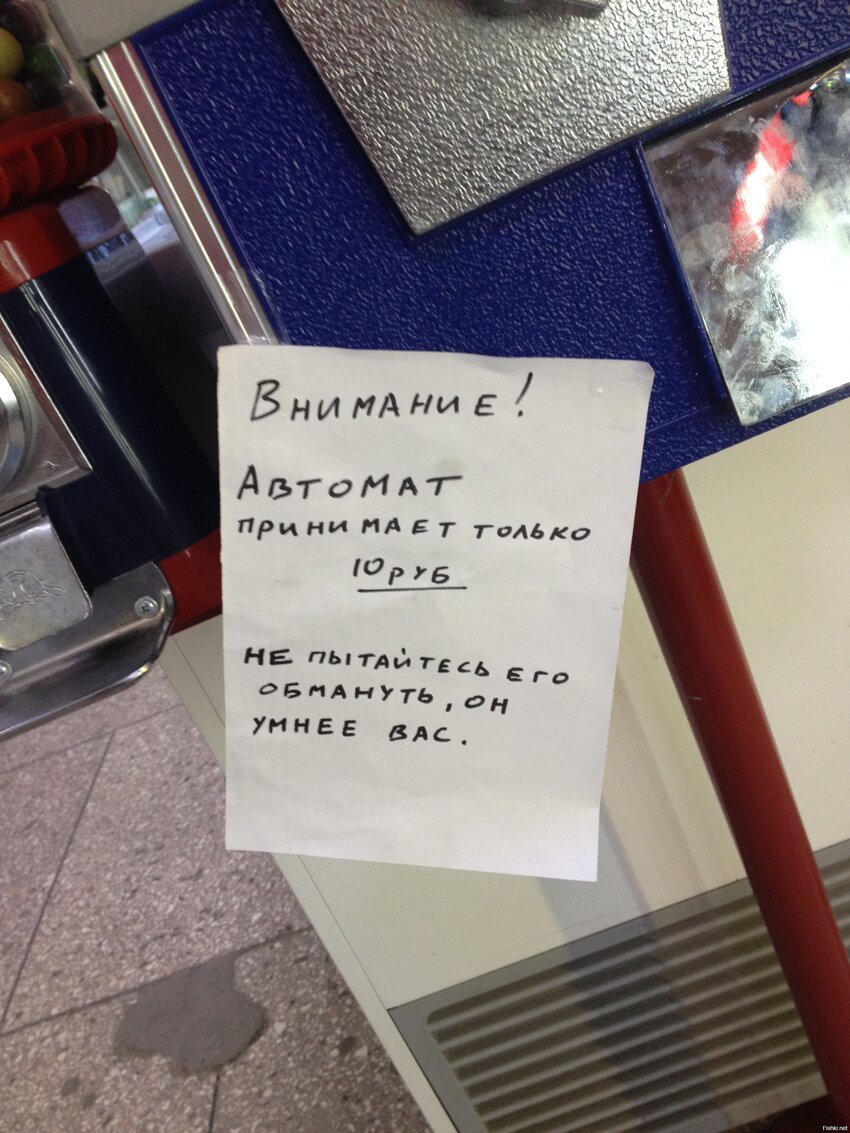 Внимание!
Автомат
принимает только
10 руб
не пытайтесь его
обмануть, он
умнее вас.
Fishki.net